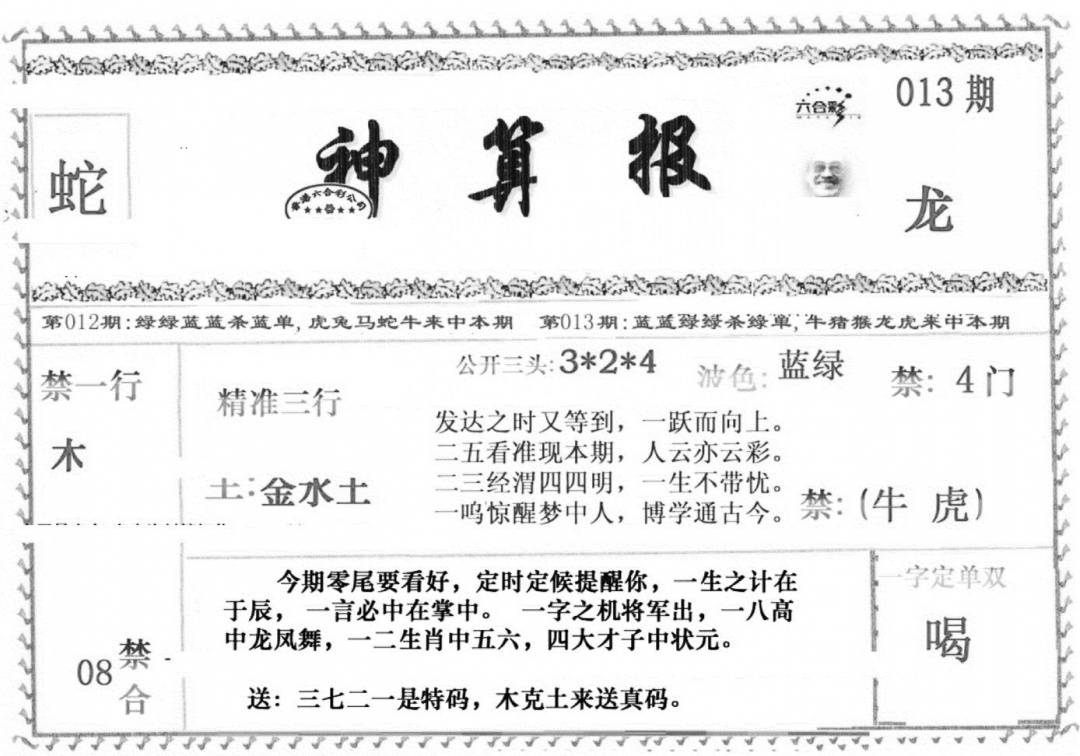 六合彩
013期
蛇
神算报
香港六合彩公司
龙
第012期:绿绿蓝蓝杀蓝单,虎兔马蛇牛来中本期 第013期:蓝蓝绿绿杀绿单,牛猪猴龙虎来中本期
禁一行
木
精准三行
土:金水土
公开三头:3*2*4
波色:蓝绿
禁:4门
发达之时又等到，一跃而向上。
二五看准现本期，人云亦云彩。
二三经渭四四明，一生不带忧。
一鸣惊醒梦中人，博学通古今。
禁:(牛 虎)
08禁合
今期零尾要看好，定时定候提醒你，一生之计在
于辰， 一言必中在掌中。 一字之机将军出，一八高
中龙凤舞，一二生肖中五六，四大才子中状元。
送：三七二一是特码，木克土来送真码。
一字定单双
喝